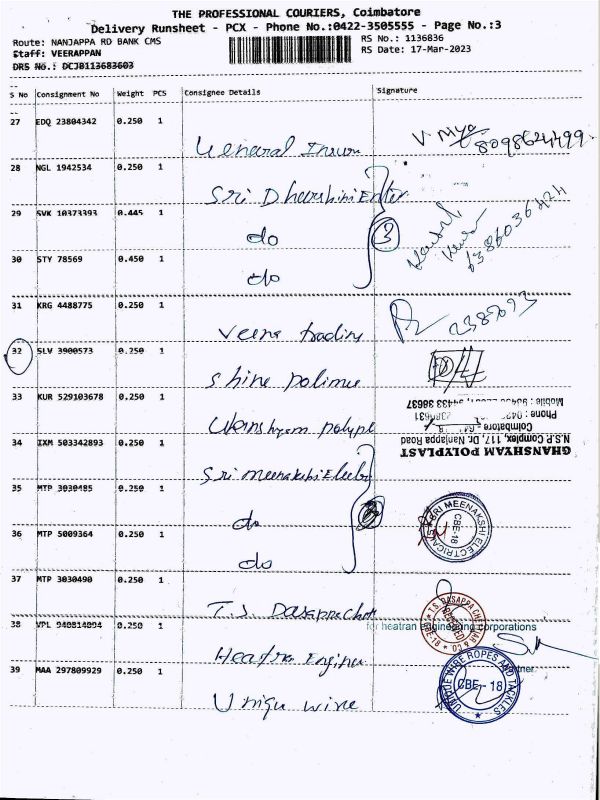 THE PROFESSIONAL COURIERS, Coimbatore
Delivery Runsheet - PCX - Phone No.:0422-3505555 - Page No.:3
Route: NANJAPPA RD BANK CMS
RS No.: 1136836
Staff: VEERAPPAN
RS Date: 17-Mar-2023
DRS No.: DCJB113683603
S No Consignment No Weight PCS Consignee Details Signature
27 EDQ 23804342 0.250 1
General Insurn
8098624499
28 NGL 1942534 0.250 1
Sri Dharshini Enter
29 SVK 10373393 0.445 1
do
3
6386036424
30 STY 78569 0.450 1
do
31 KRG 4488775 0.250 1
Veena trading
32 SLV 3900573 0.250 1
Shine polimer
33 KUR 529103678 0.250 1
Ghanshyam polypl
GHANSHYAM POLYPLAST
N.S.P. Complex, 117, Dr. Nanjappa Road
Coimbatore -
Phone : 042
Mobile :
34 IXM 503342893 0.250 1
Sri meenakshi Elecb
35 MTP 3030485 0.250 1
do
36 MTP 5009364 0.250 1
do
SRI MEENAKSHI ELECTRICALS
CBE-18
37 MTP 3030490 0.250 1
T.S. Dasappa Chett
T.S. DASAPPA CHETTIAR & CO
38 VPL 940814894 0.250 1
for heatran engineering corporations
Heatra Engine
39 MAA 297809929 0.250 1
Uniqu wire
UNIQUE WIRE ROPES AND TACKLES
CBE - 18